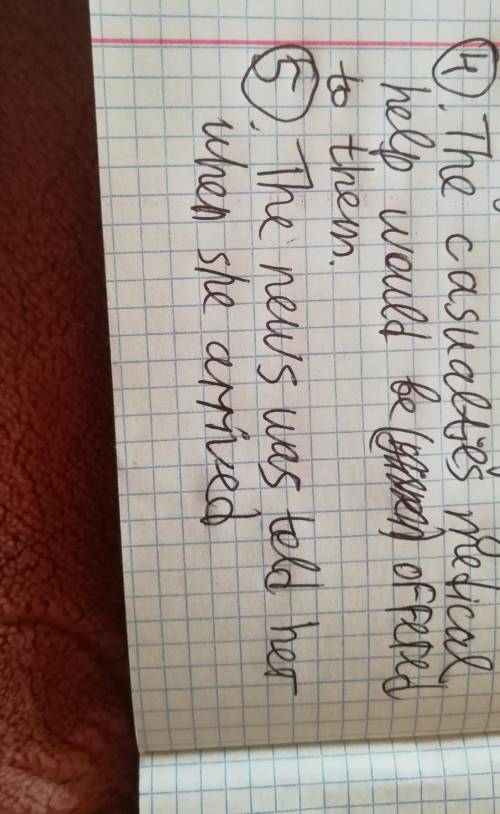 4. The casualties medical
help would be offered
to them.
5. The news was told her
when she arrived